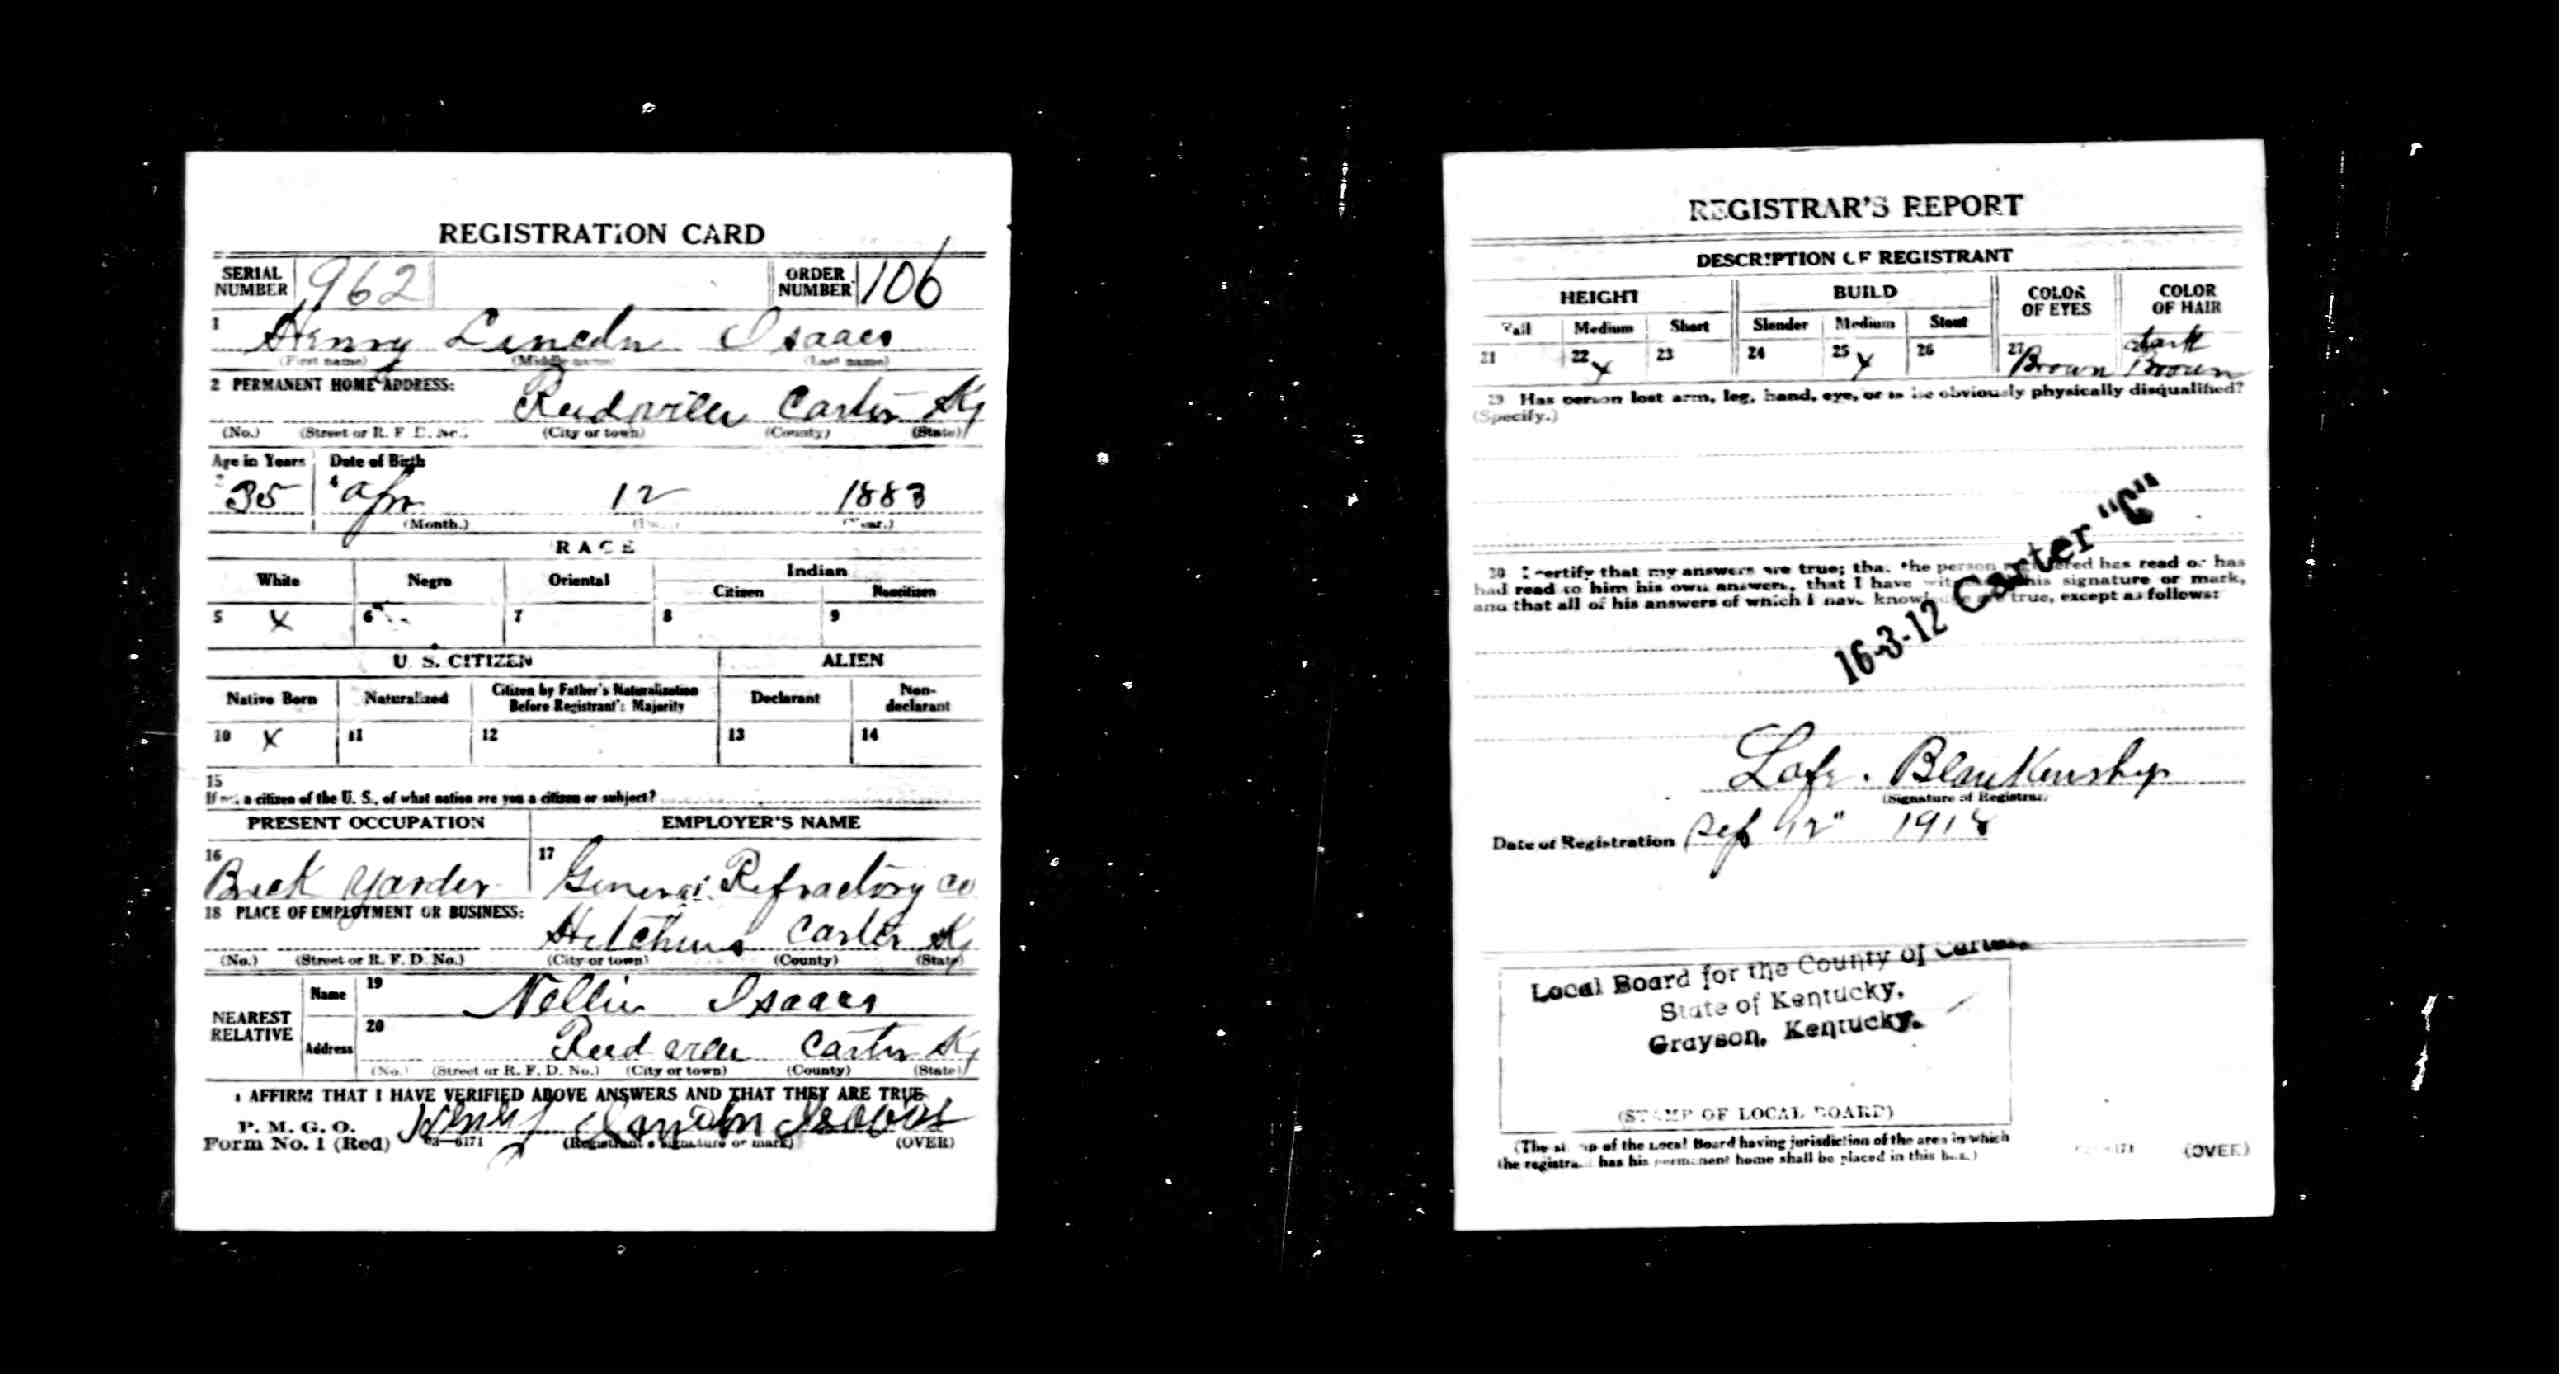 REGISTRATION CARD
SERIAL NUMBER 962 ORDER NUMBER 106
1 Henry Lincoln Isaacs
(First name) (Middle name) (Last name)
2 PERMANENT HOME ADDRESS:
Reedville Carter Ky
(No.) (Street or R. F. D. No.) (City or town) (County) (State)
Age in Years Date of Birth
35 4 Apr 12 1883
(Month.) (Year.)
RACE
White Negro Oriental Indian
Citizen Noncitizen
5 X 6 7 8 9
U. S. CITIZEN ALIEN
Native Born Naturalized Citizen by Father's Naturalization Before Registrant's Majority Declarant Non-declarant
10 X 11 12 13 14
15
If not a citizen of the U. S., of what nation are you a citizen or subject?
PRESENT OCCUPATION EMPLOYER'S NAME
16 Brick Yarder 17 General Refractory Co
18 PLACE OF EMPLOYMENT OR BUSINESS:
Hitchins Carter Ky
(No.) (Street or R. F. D. No.) (City or town) (County) (State)
NEAREST RELATIVE
Name 19 Nellie Isaacs
Address 20 Reedville Carter Ky
(No.) (Street or R. F. D. No.) (City or town) (County) (State)
I AFFIRM THAT I HAVE VERIFIED ABOVE ANSWERS AND THAT THEY ARE TRUE
P. M. G. O.
Form No. 1 (Red) 03—6171 Henry Lincoln Isaacs
(Registrant's signature or mark) (OVER)
REGISTRAR'S REPORT
DESCRIPTION OF REGISTRANT
HEIGHT BUILD COLOR OF EYES COLOR OF HAIR
Tall Medium Short Slender Medium Stout
21 22 X 23 24 25 X 26 27 Brown dark Brown
29 Has person lost arm, leg, hand, eye, or is he obviously physically disqualified?
(Specify.)
30 I certify that my answers are true; that the person registered has read or has
had read to him his own answers, that I have witnessed his signature or mark,
and that all of his answers of which I have knowledge are true, except as follows:
16-3-12 Carter "C"
Lafe. Blankenship
(Signature of Registrar)
Date of Registration Sep 12" 1918
Local Board for the County of Carter,
State of Kentucky,
Grayson, Kentucky.
(STAMP OF LOCAL BOARD)
(The stamp of the Local Board having jurisdiction of the area in which
the registrant has his permanent home shall be placed in this box.)
(OVER)